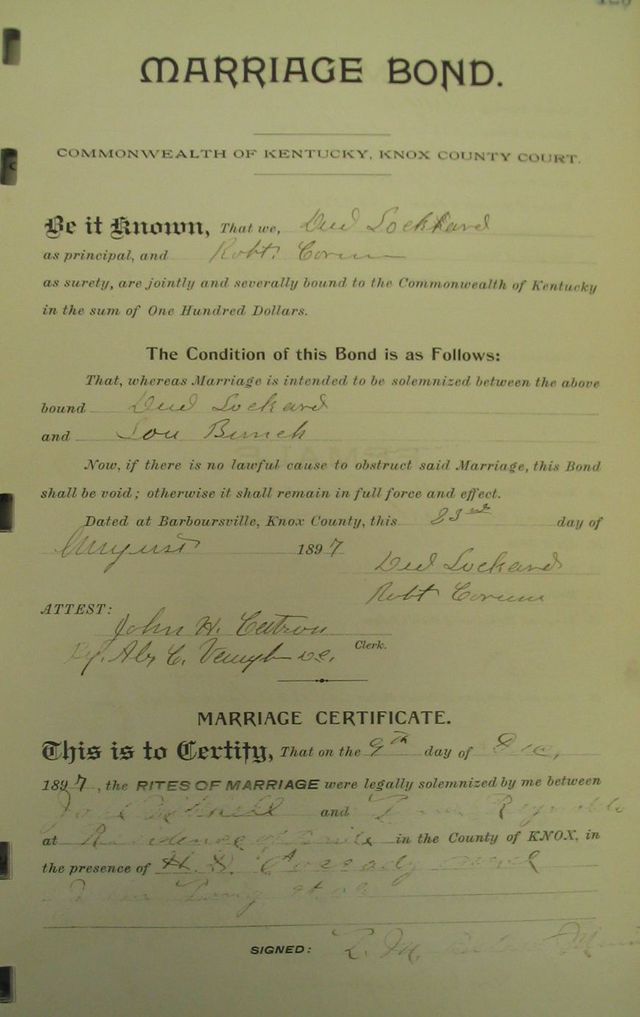 MARRIAGE BOND.
COMMONWEALTH OF KENTUCKY, KNOX COUNTY COURT.
Be it Known, That we, Dud Lockard
as principal, and Robt. Corum
as surety, are jointly and severally bound to the Commonwealth of Kentucky
in the sum of One Hundred Dollars.
The Condition of this Bond is as Follows:
That, whereas Marriage is intended to be solemnized between the above
bound Dud Lockard
and Lou Bunch
Now, if there is no lawful cause to obstruct said Marriage, this Bond
shall be void; otherwise it shall remain in full force and effect.
Dated at Barboursville, Knox County, this 23 day of
August 1897
Dud Lockard
Robt Corum
ATTEST:
John H. Catron
By. Alx C. D.C. Clerk.
MARRIAGE CERTIFICATE.
This is to Certify, That on the 9th day of Dec,
1897, the RITES OF MARRIAGE were legally solemnized by me between
and Reynolds
at Residence of in the County of KNOX, in
the presence of H. D.
SIGNED: